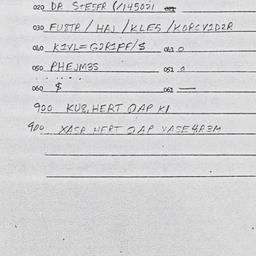 020 DR STEFFR (/145021
030 FU8TR / HAJ / KLE5 / KORCV1D2R
040 K1VL=G2R1FF/$ 041 0
050 PHEJM3S 051 0
060 $ 061 —
900 KU8, HERT QAP K1
900 XASR HERT QAP VASE4R3M